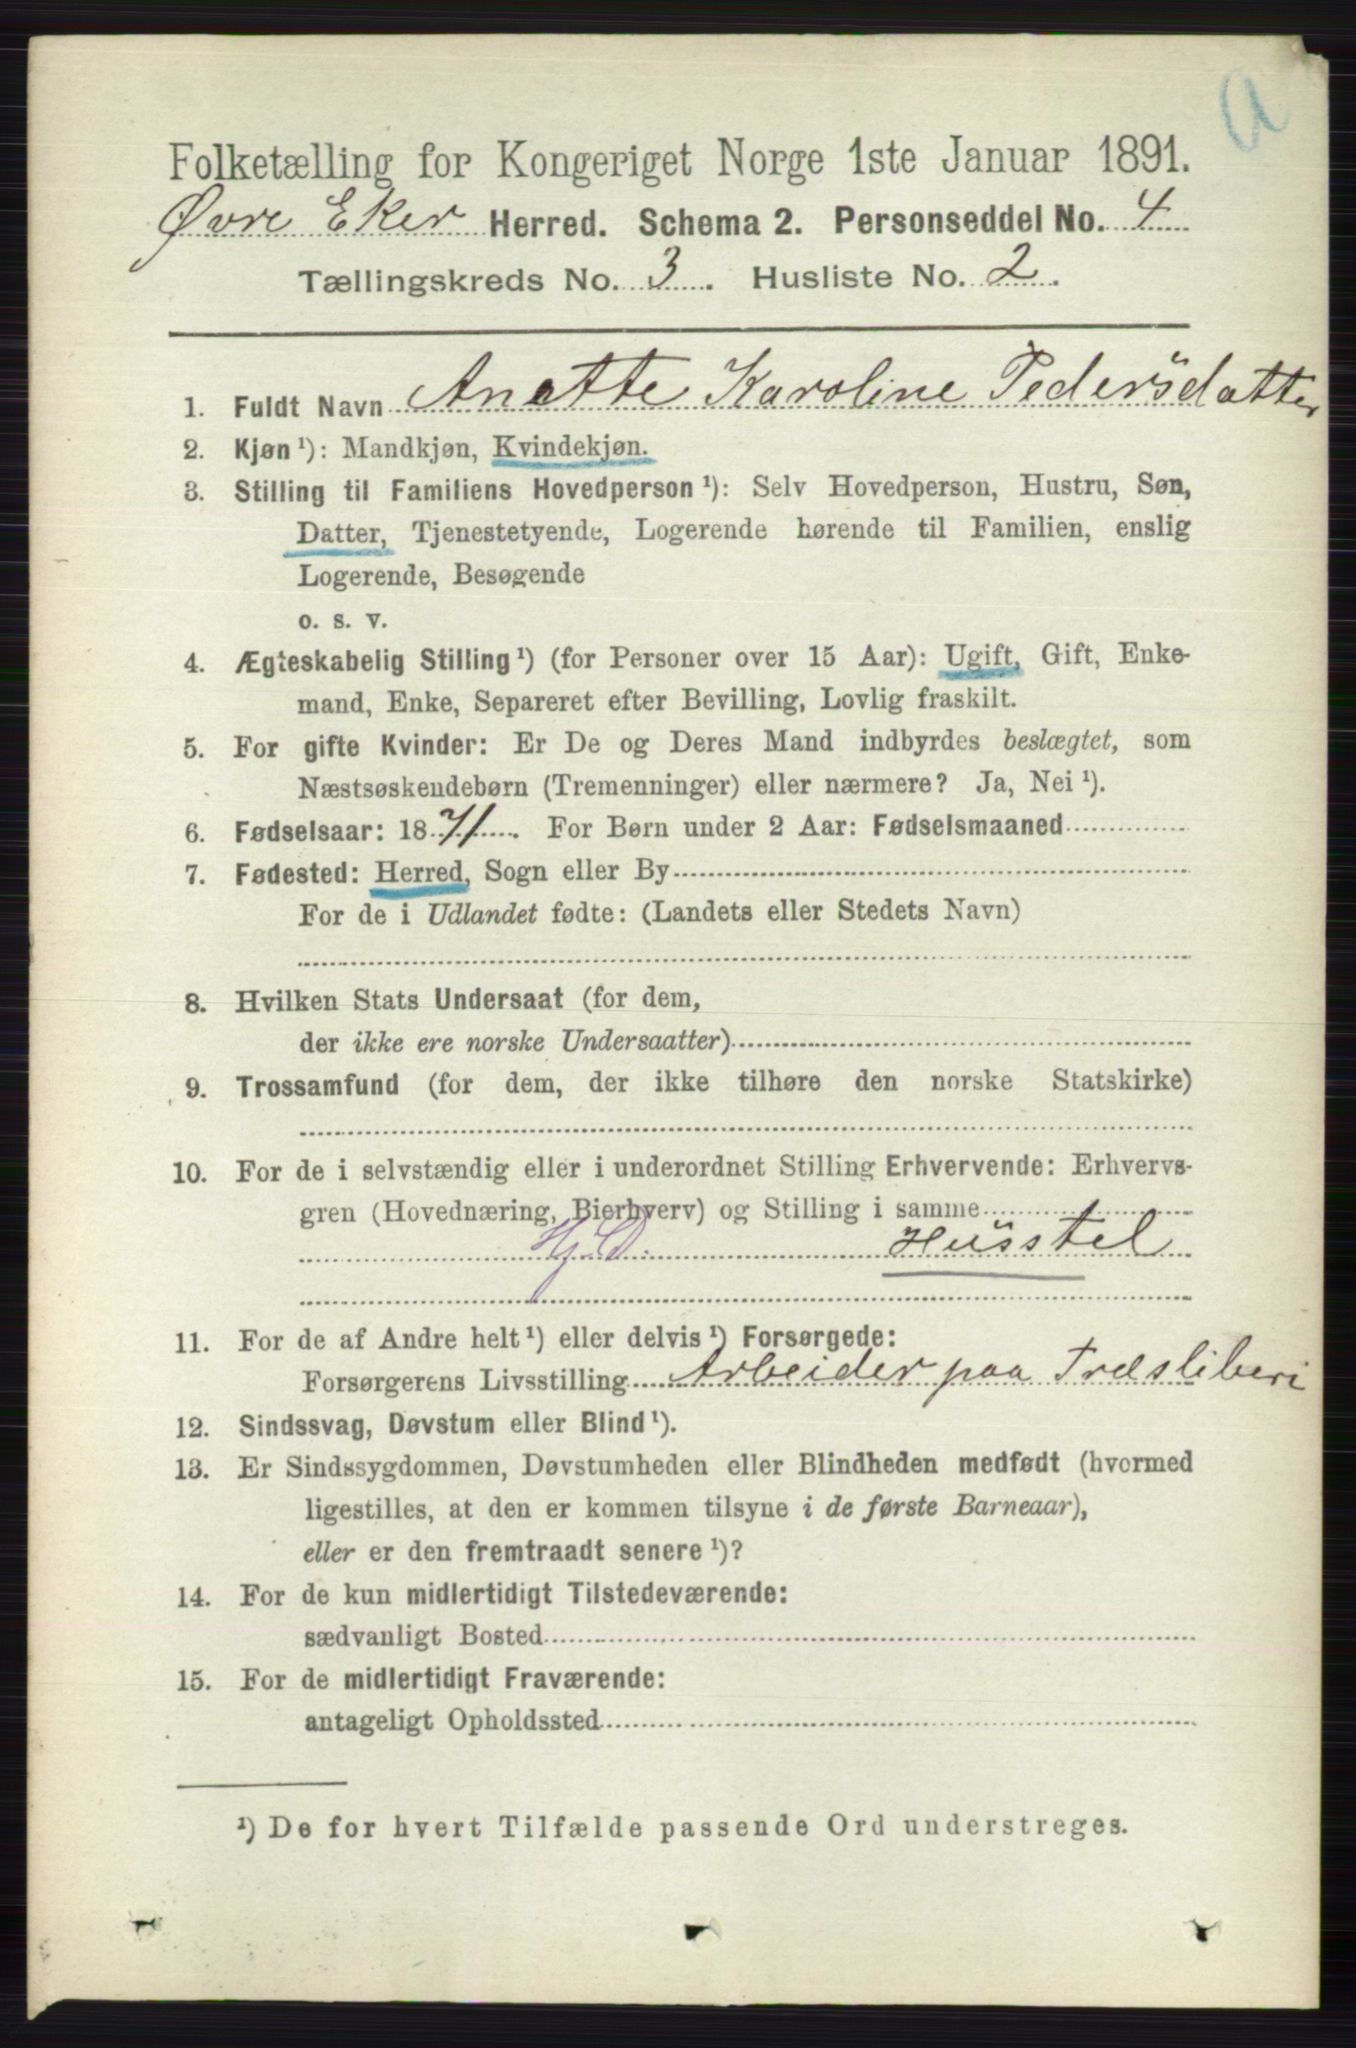 a
Folketælling for Kongeriget Norge 1ste Januar 1891.
Øvre Eker Herred. Schema 2. Personseddel No. 4
Tællingskreds No. 3. Husliste No. 2.
1. Fuldt Navn Anette Karoline Pedersdatter
2. Kjøn ¹): Mandkjøn, Kvindekjøn.
3. Stilling til Familiens Hovedperson ¹): Selv Hovedperson, Hustru, Søn,
Datter, Tjenestetyende, Logerende hørende til Familien, enslig
Logerende, Besøgende
o. s. v.
4. Ægteskabelig Stilling ¹) (for Personer over 15 Aar): Ugift, Gift, Enke-
mand, Enke, Separeret efter Bevilling, Lovlig fraskilt.
5. For gifte Kvinder: Er De og Deres Mand indbyrdes beslægtet, som
Næstsøskendebørn (Tremenninger) eller nærmere? Ja, Nei ¹).
6. Fødselsaar: 1871. For Børn under 2 Aar: Fødselsmaaned
7. Fødested: Herred, Sogn eller By
For de i Udlandet fødte: (Landets eller Stedets Navn)
8. Hvilken Stats Undersaat (for dem,
der ikke ere norske Undersaatter)
9. Trossamfund (for dem, der ikke tilhøre den norske Statskirke)
10. For de i selvstændig eller i underordnet Stilling Erhvervende: Erhvervs-
gren (Hovednæring, Bierhverv) og Stilling i samme
Husstel
11. For de af Andre helt ¹) eller delvis ¹) Forsørgede:
Forsørgerens Livsstilling Arbeider paa Træsliberi
12. Sindssvag, Døvstum eller Blind ¹).
13. Er Sindssygdommen, Døvstumheden eller Blindheden medfødt (hvormed
ligestilles, at den er kommen tilsyne i de første Barneaar),
eller er den fremtraadt senere ¹)?
14. For de kun midlertidigt Tilstedeværende:
sædvanligt Bosted
15. For de midlertidigt Fraværende:
antageligt Opholdssted
¹) De for hvert Tilfælde passende Ord understreges.